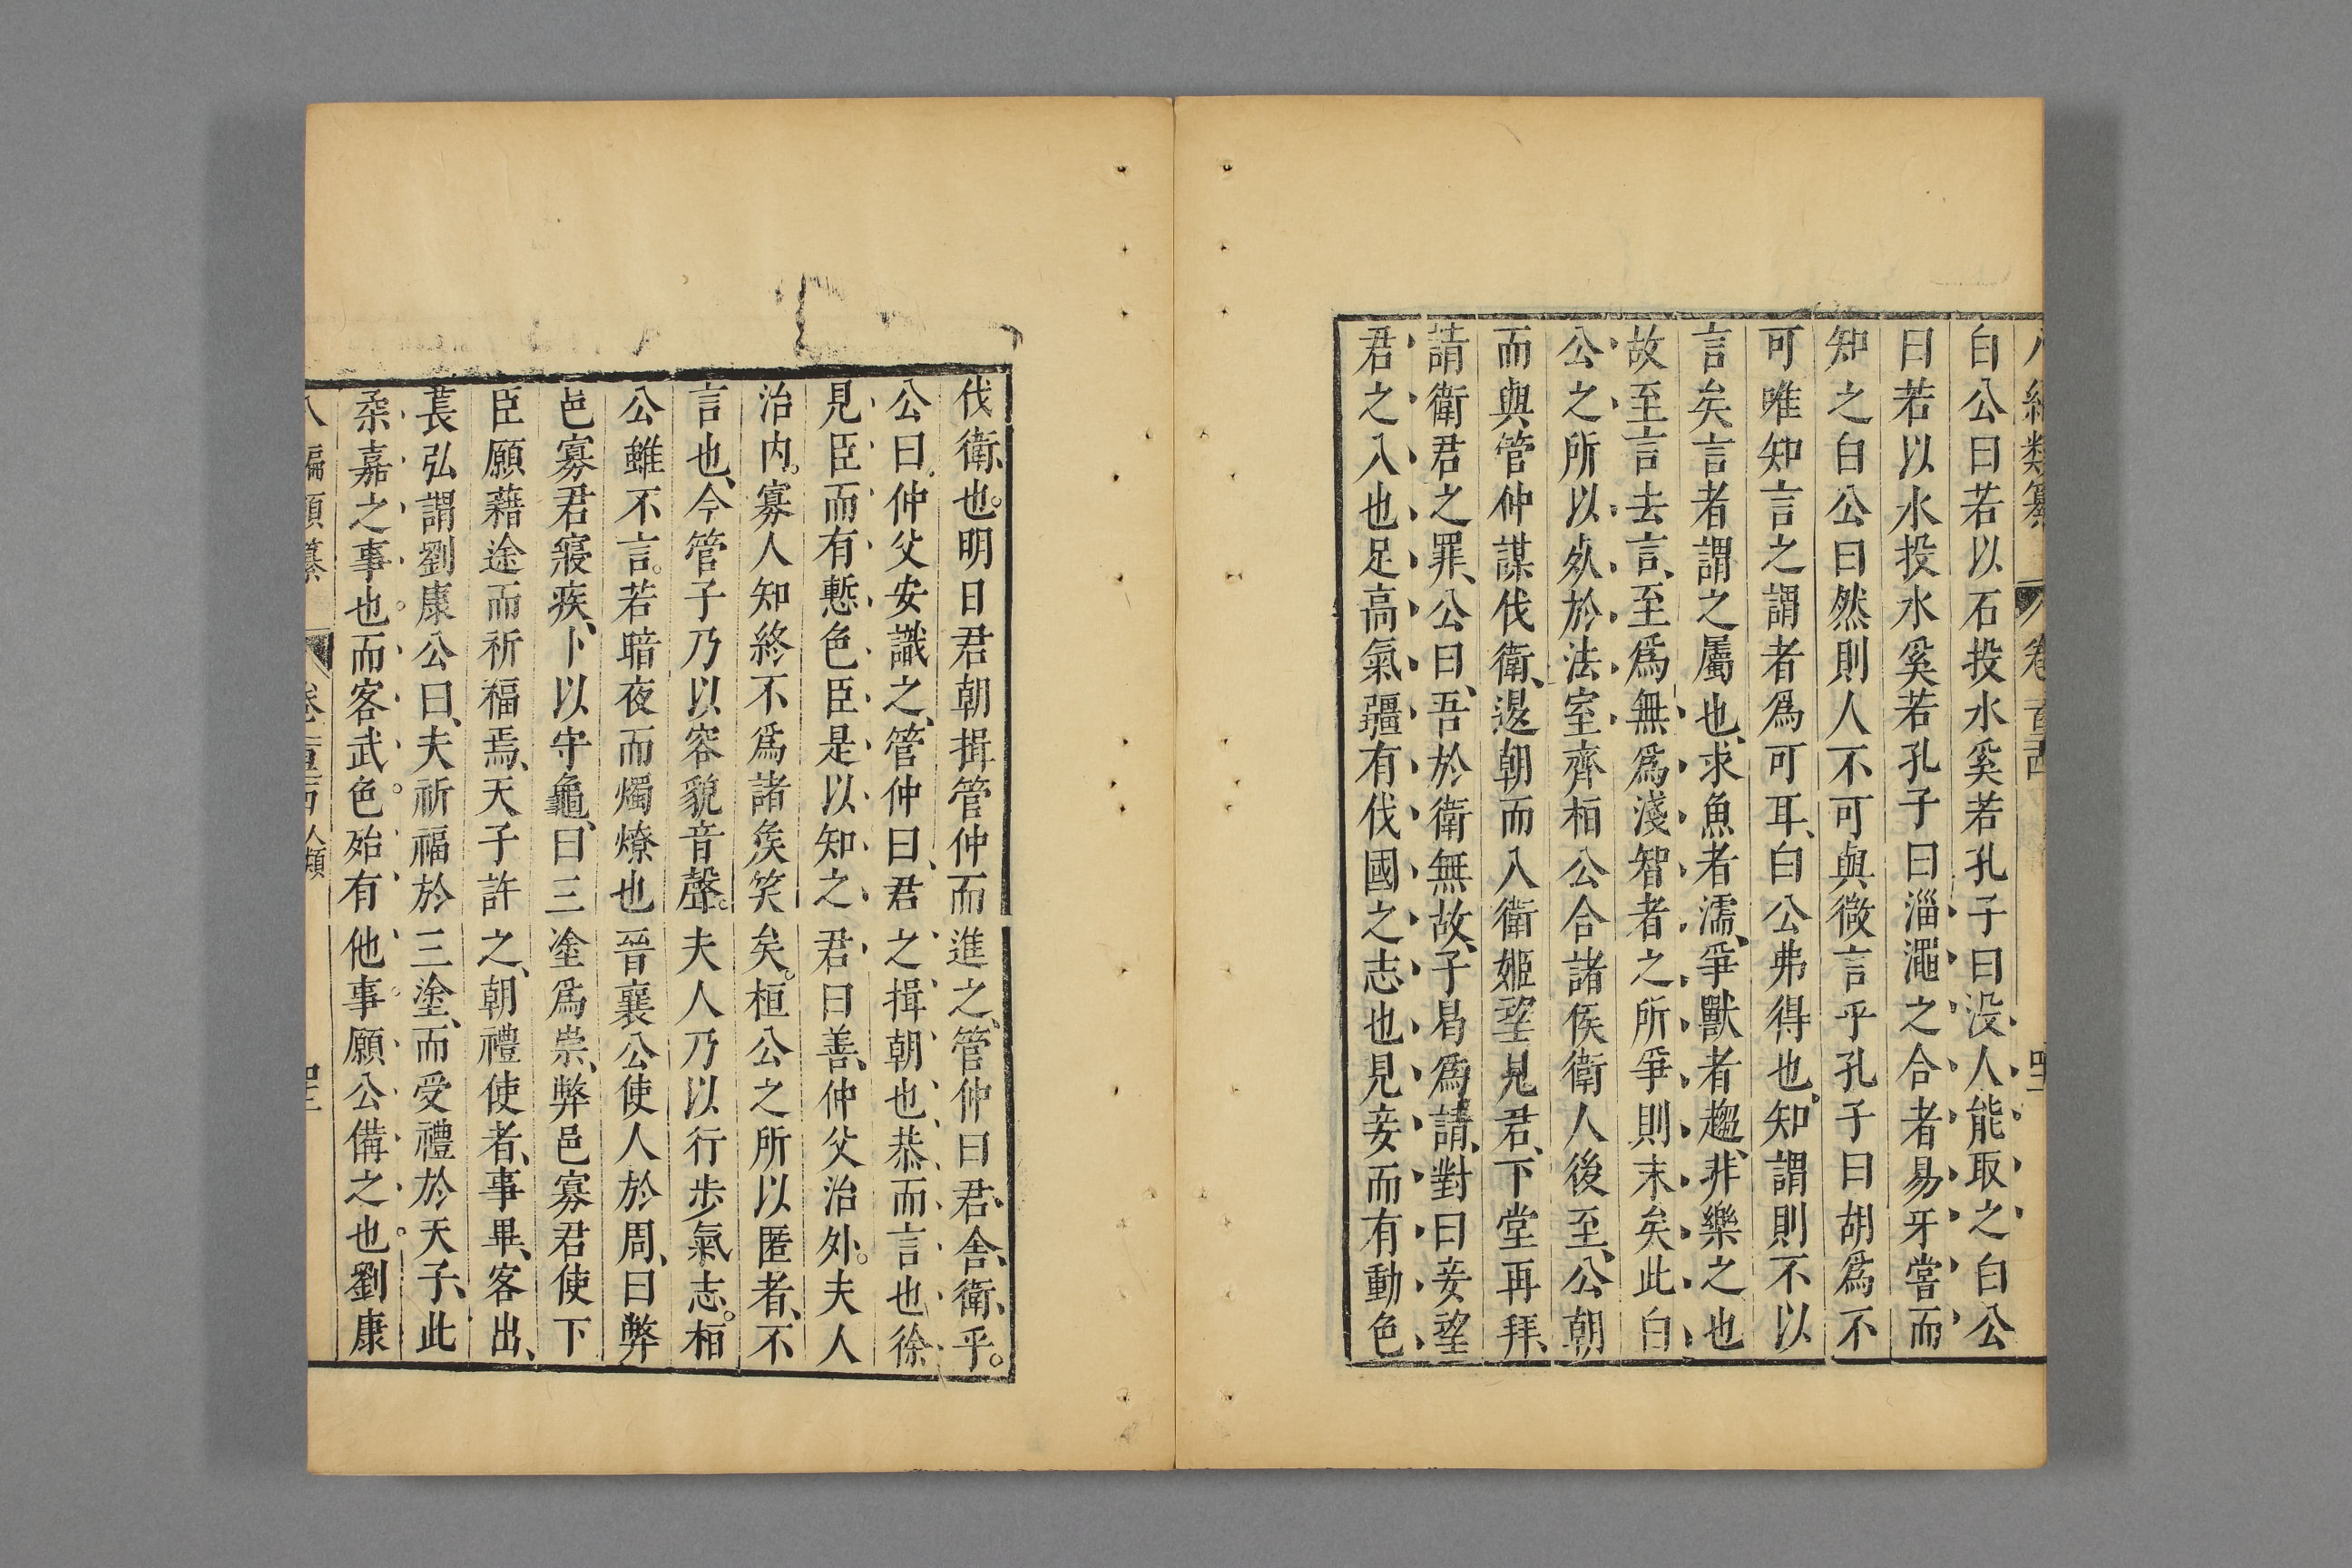 八編類纂 卷一百二十四 四十二
白公曰若以石投水奚若孔子曰没人能取之白公
曰若以水投水奚若孔子曰淄澠之合者易牙嘗而
知之白公曰然則人不可與微言乎孔子曰胡爲不
可唯知言之謂者爲可耳白公弗得也知謂則不以
言矣言者謂之屬也求魚者濡爭獸者趨非樂之也
故至言去言至爲無爲淺智者之所爭則末矣此白
公之所以𣦸於法室齊桓公合諸侯衛人後至公朝
而與管仲謀伐衛退朝而入衛姬望見君下堂再拜
請衛君之罪公曰吾於衛無故子曷爲請對曰妾望
君之入也足高氣彊有伐國之志也見妾而有動色
伐衛也明日君朝揖管仲而進之管仲曰君舍衛乎
公曰仲父安識之管仲曰君之揖朝也恭而言也徐
見臣而有慙色臣是以知之君曰善仲父治外夫人
治内寡人知終不爲諸侯笑矣桓公之所以匿者不
言也今管子乃以容貌音聲夫人乃以行步氣志桓
公雖不言若暗夜而燭燎也晉襄公使人於周曰弊
邑寡君寢疾卜以守龜曰三塗爲祟弊邑寡君使下
臣願藉途而祈福焉天子許之朝禮使者事畢客出
萇弘謂劉康公曰夫祈福於三塗而受禮於天子此
柔嘉之事也而客武色殆有他事願公備之也劉康
八編類纂 卷一百二十四人類 四十三